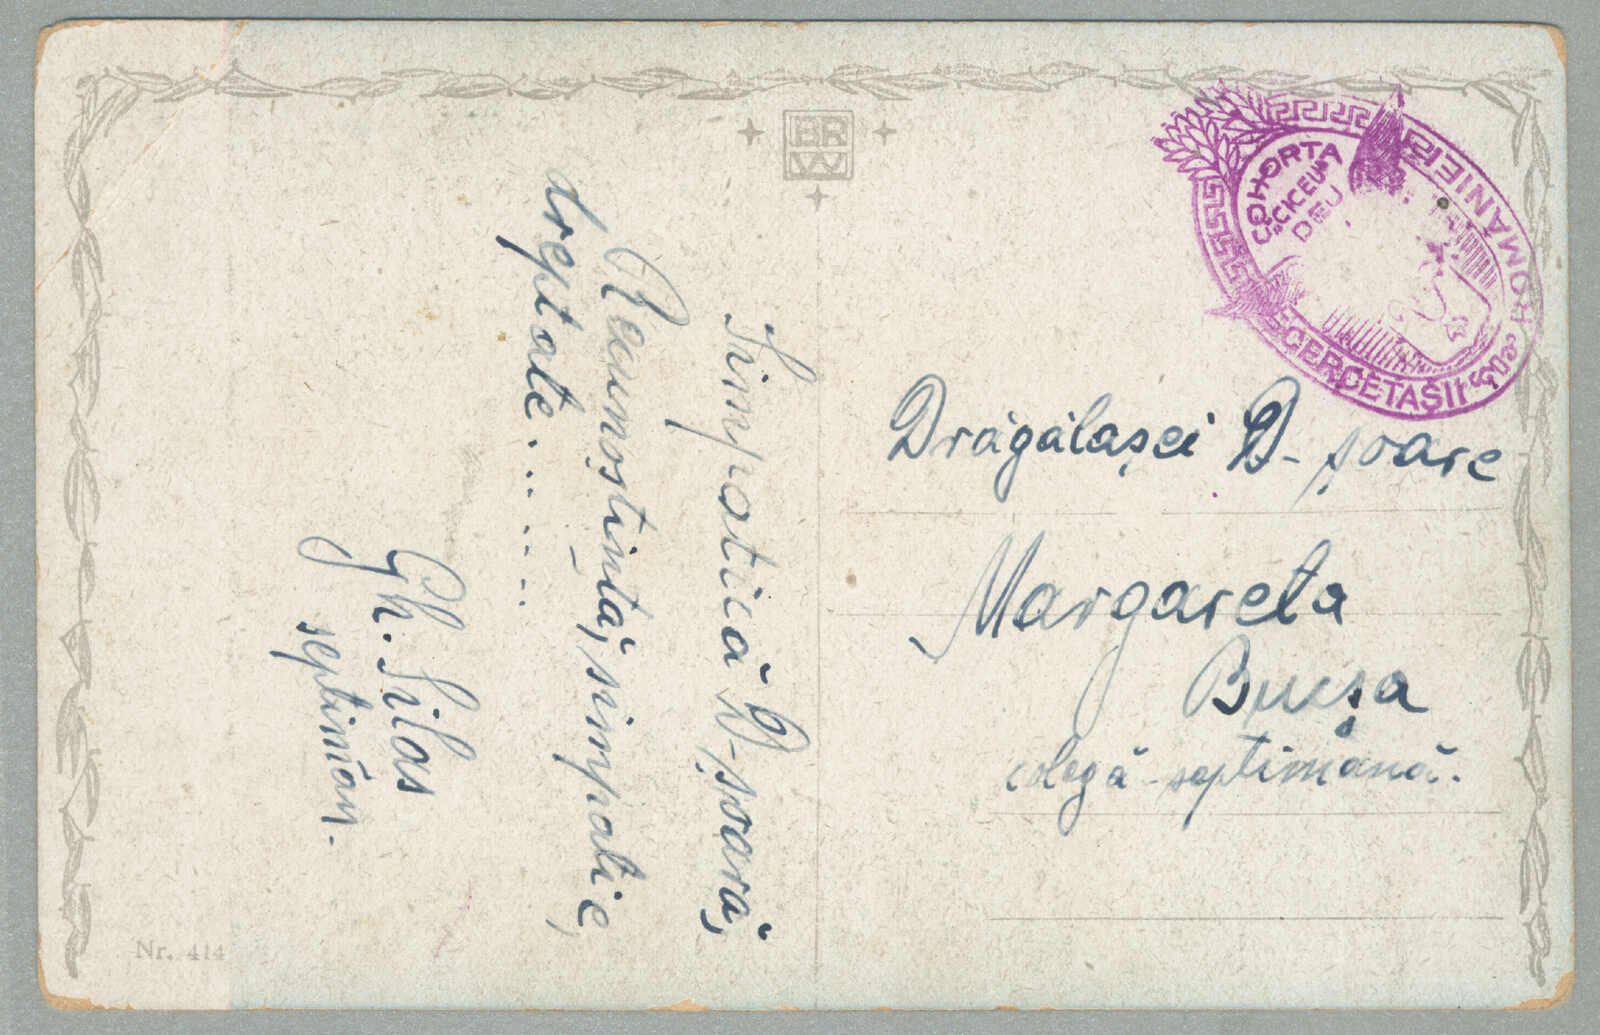 BR
W
COHORTA
„CICEU”
DEJ
CERCETAȘII
ROMÂNIEI
Simpatică D-șoară,
Recunoștință, simpatie,
dreptate . . . . . .
Gh. Silas
septiman.
Drăgălașei D-șoare
Margareta
colegă-septimană.
Nr. 414